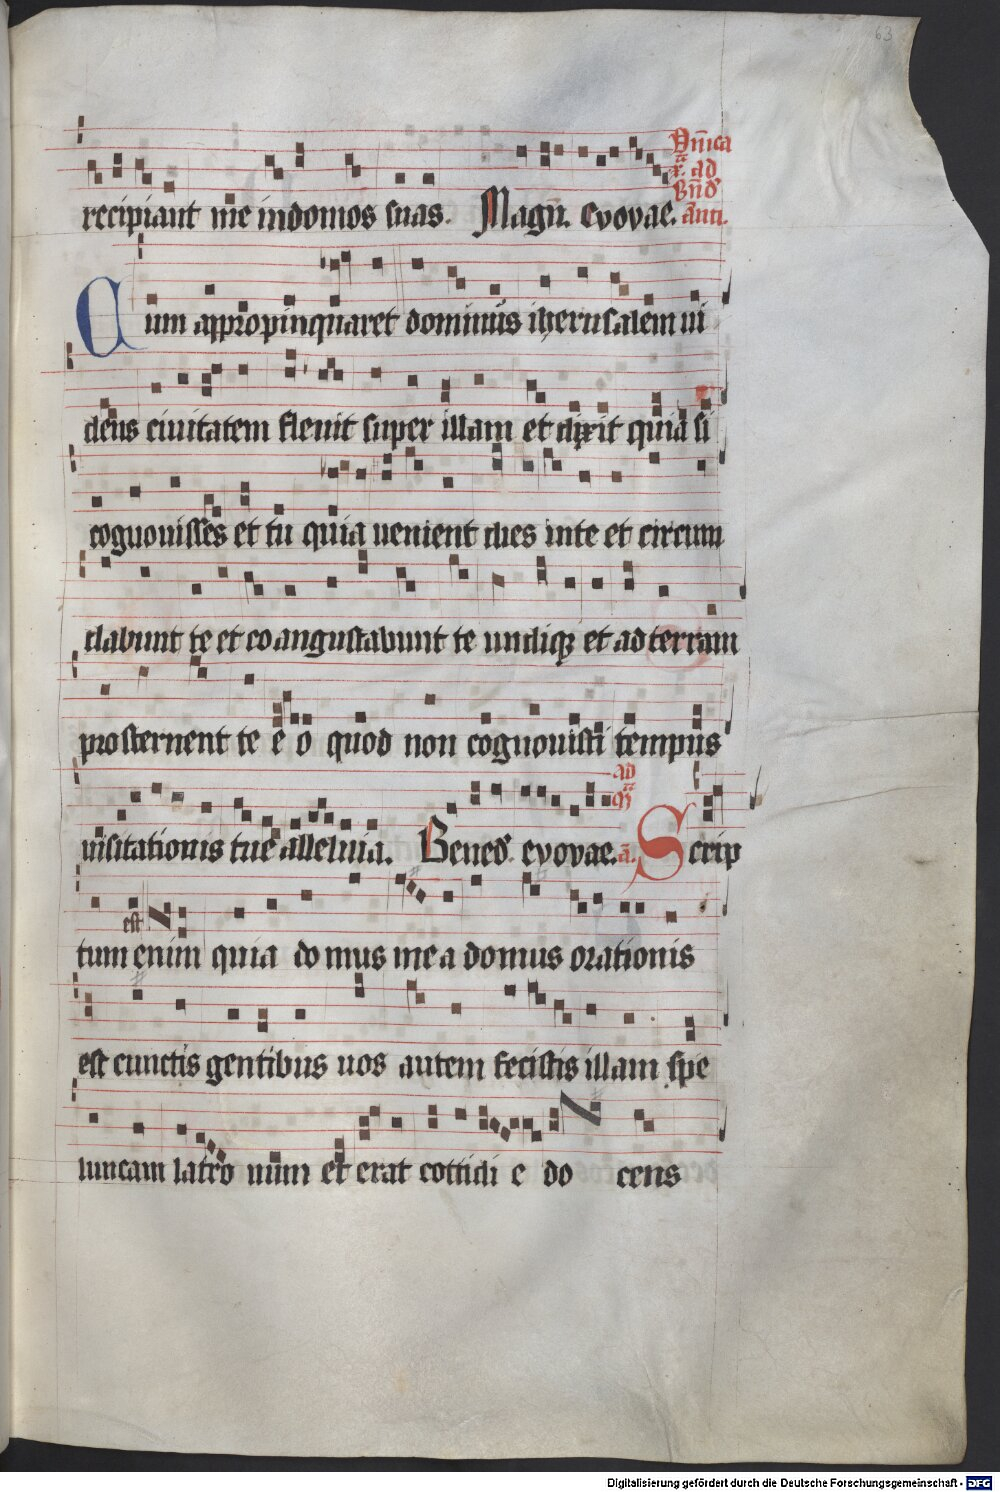 63
recipiant me in domos suas. Magn̄. evovae. Dn̄ica x. ad Bn̄d̄ ān̄.
Cum appropinquaret dominus iherusalem ui
dens ciuitatem fleuit super illam et dixit quia si
cognouisses et tu quia uenient dies in te et circum
dabunt te et coangustabunt te undiq; et ad terram
prosternent te e o quod non cognouisti tempus
ad
uisitationis tue alleluia. Bened̄. evovae. ā. Scrip
est
tum enim quia domus mea domus orationis
est cunctis gentibus uos autem fecistis illam spe
luncam latro num et erat cottidi e do cens
Digitalisierung gefördert durch die Deutsche Forschungsgemeinschaft - DFG